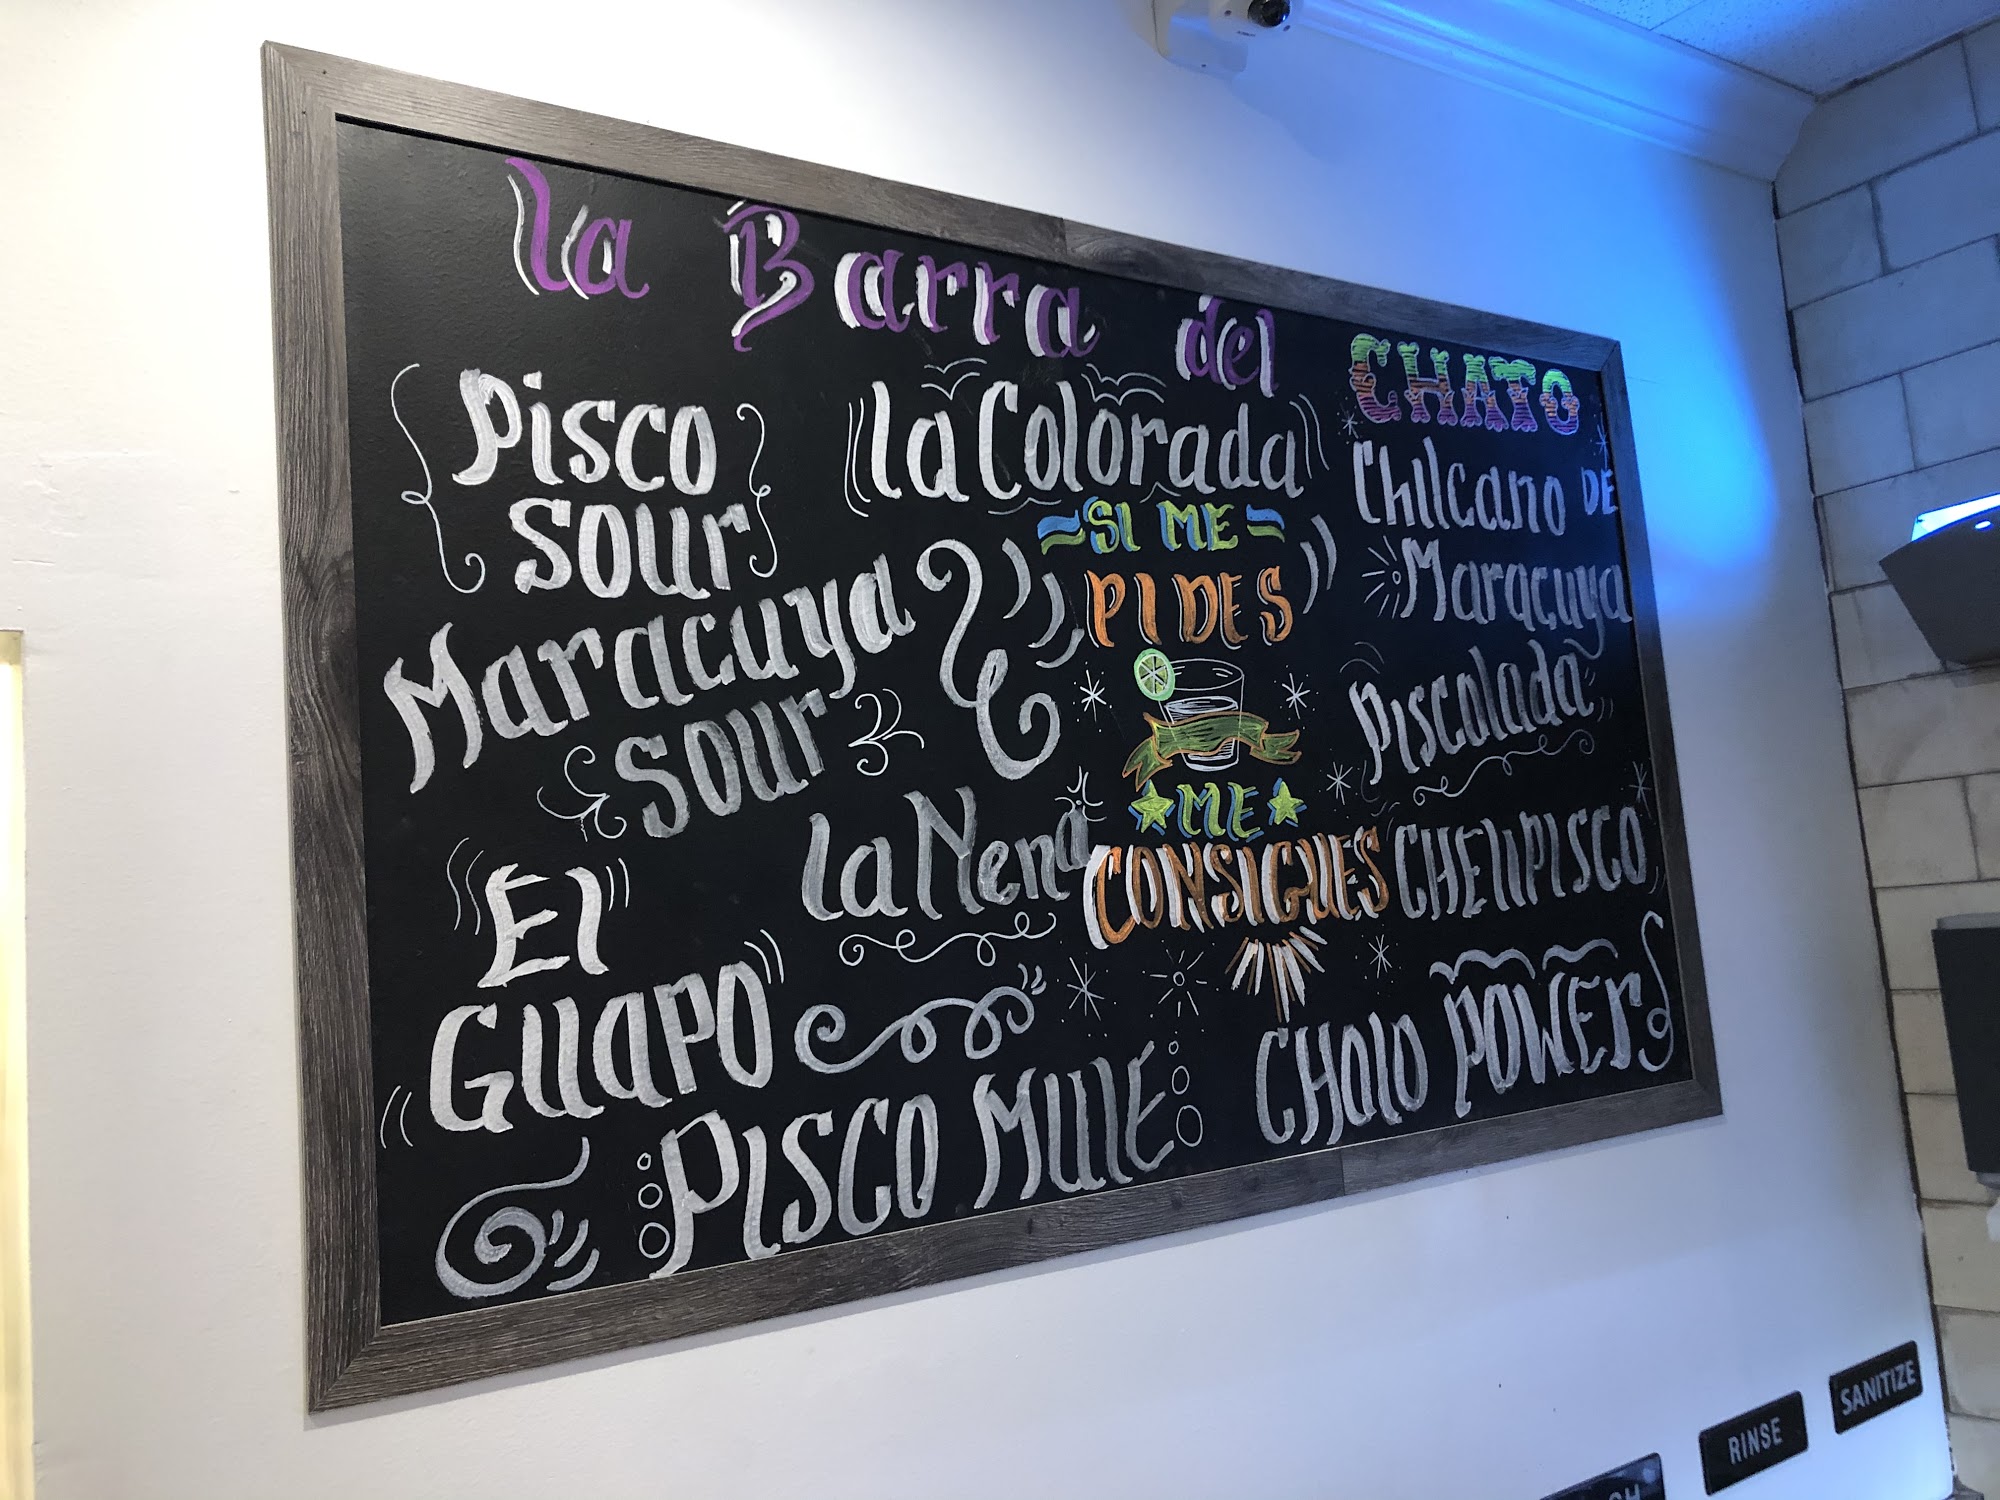 la Barra del CHATO
Pisco
Sour
Maracuya
Sour
El
Guapo
PISCO MULE
la Colorada
la Nena
SI ME
PIDES
ME
CONSIGUES
Chilcano DE
Maracuya
Piscolada
CHELIPISCO
CHOLO POWER
RINSE
SANITIZE